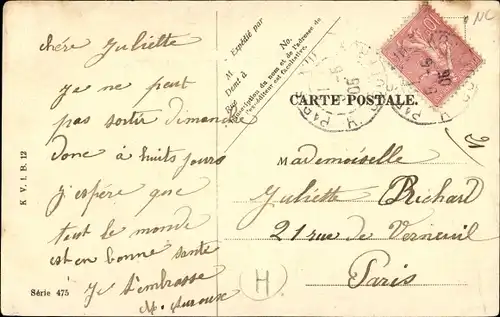 chère Juliette
Je ne peut
pas sortir dimanche
donc à huits jours
j'espère que
tout le monde
est en bonne santé
Je t'embrasse
K V i B. 12
Série 475
Expédié par
M
Demt à
Rue
No.
L'inscription du nom et de l'adresse de
l'expéditeur est facultative.
CARTE POSTALE.
Mademoiselle
Juliette Richard
21 rue de Verneuil
Paris
H
NC
21
10
PARIS